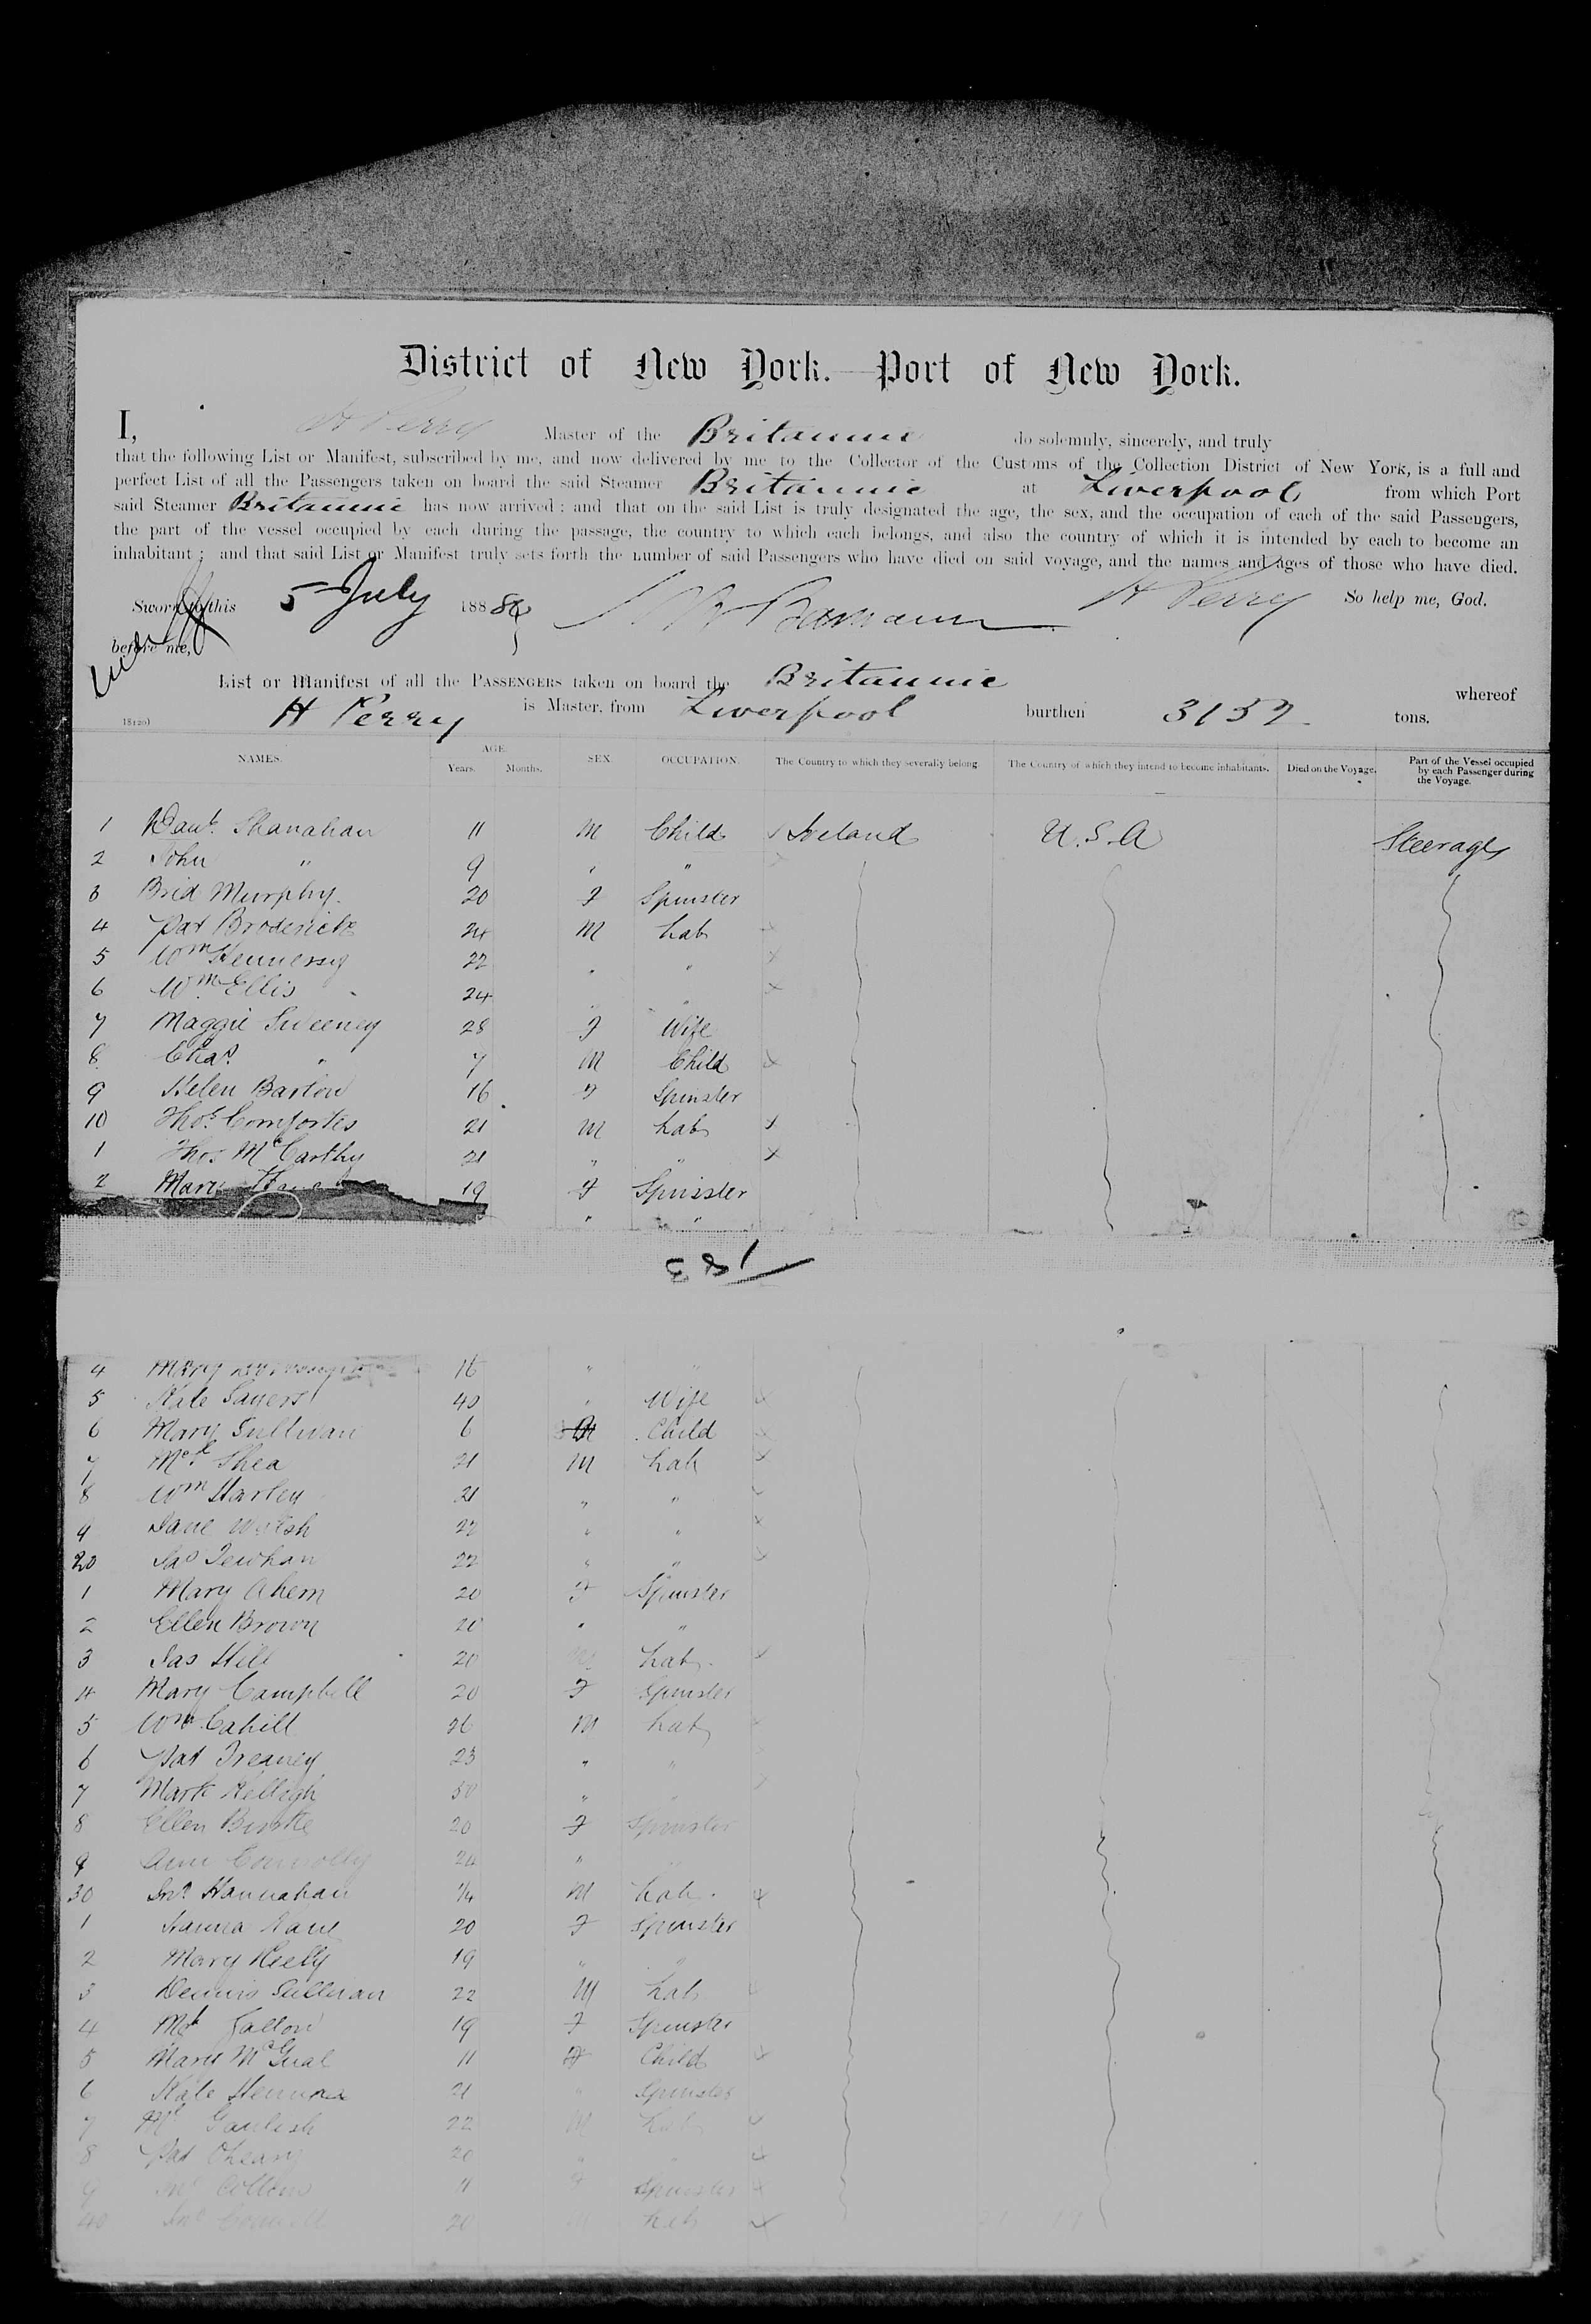 District of New York.—Port of New York.
I, H Perry Master of the Britannic do solemnly, sincerely, and truly
that the following List or Manifest, subscribed by me, and now delivered by me to the Collector of the Customs of the Collection District of New York, is a full and
perfect List of all the Passengers taken on board the said Steamer Britannic at Liverpool from which Port
said Steamer Britannic has now arrived; and that on the said List is truly designated the age, the sex, and the occupation of each of the said Passengers,
the part of the vessel occupied by each during the passage, the country to which each belongs, and also the country of which it is intended by each to become an
inhabitant; and that said List or Manifest truly sets forth the number of said Passengers who have died on said voyage, and the names and ages of those who have died.
Sworn to this 5 July 188 H Perry So help me, God.
before me,
List or Manifest of all the PASSENGERS taken on board the Britannic whereof
H Perry is Master, from Liverpool burthen 3152 tons.
NAMES. AGE. Years. Months. SEX. OCCUPATION. The Country to which they severally belong. The Country of which they intend to become inhabitants. Died on the Voyage. Part of the Vessel occupied by each Passenger during the Voyage.
1 Danl. Shanahan 11 M Child Ireland U.S.A Steerage
2 John " 9 " "
3 Brid Murphy. 20 F Spinster
4 Pat Broderick 24 M Lab
5 Wm Hennessy 22 " "
6 Wm. Ellis 24 " "
7 Maggie Sweeney 28 F Wife
8 Chas. " 7 M Child
9 Helen Barton 16 F Spinster
10 Thos. 21 M Lab
1 Thos McCarthy 21 " "
2 Mary 19 F Spinster
" "
183
4 Mary 16 " "
5 Kate Sayers 40 " Wife
6 Mary Sullivan 6 Child
7 Mcl. Shea 21 M Lab
8 Wm Harley 21 " "
9 Walsh 22 " "
20 Jas 22 " "
1 Mary Ahern 20 F Spinster
2 Ellen Brown 20 " "
3 Jas Hill 20 M Lab.
4 Mary Campbell 20 F Spinster
5 Wm. Cahill 26 M Lab
6 Pat Treaney 23 " "
7 Mark 50 " "
8 Ellen Burke 20 F Spinster
9 Ann Connolly 24 " "
30 Jno. Hannahan 14 M Lab.
1 Hanna Kane 20 F Spinster
2 Mary Kielly 19 " "
3 Dennis Sullivan 22 M Lab
4 Fallon 19 F Spinster
5 Mary McGual 11 F Child
6 Kate 21 " Spinster
7 22 M Lab
8 Pat OLeary 20 " "
9 11 F Spinster
40 Jno 20 M Lab